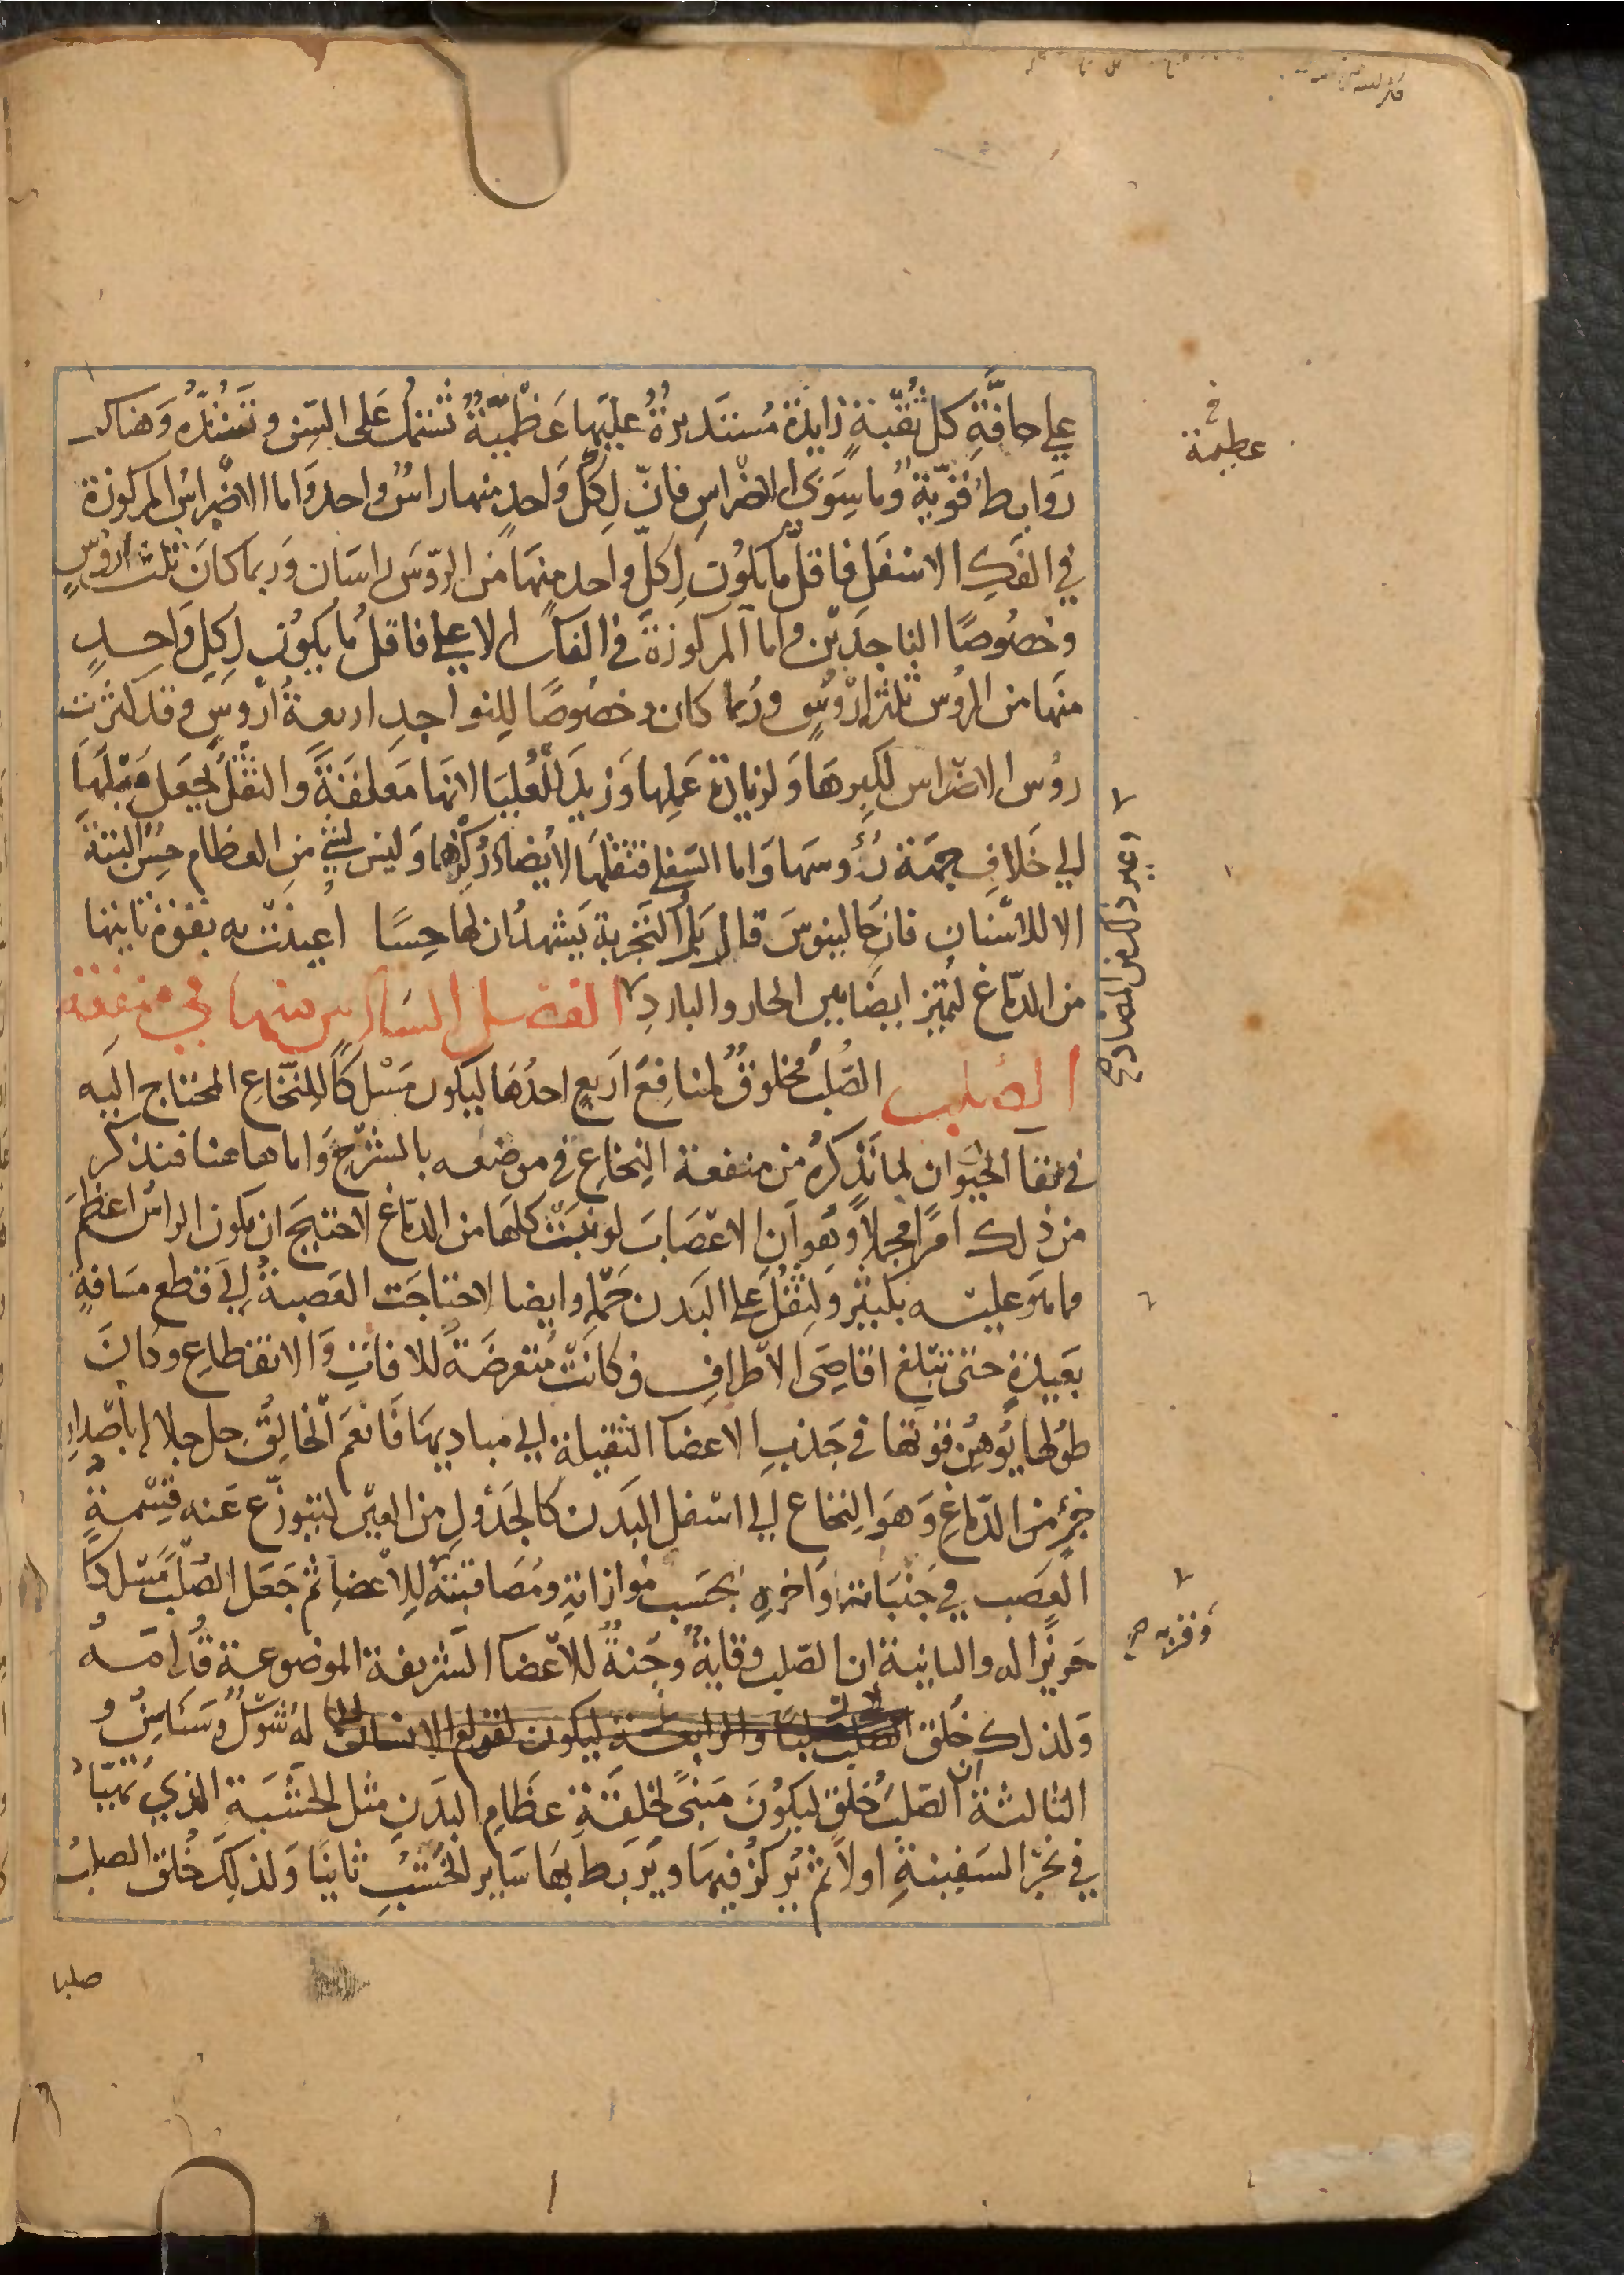 علي حافَّةِ كل ثُقبَةٍ زايدة مُستَديرةٌ عليها عَظْمِيَّةٌ تشتمل عَلى السِّن وتَشُدُّه وَهناك
رَوابط قوّيةٌ وُما سِوَى الاضراسِ فانّ لِكل وَاحدٍ منها راسٌ واحد وَاما الاضراس المركوزة
في الفَكِ الاسْفَلِ فاقلّ ما يكوُن لِكلّ واحد منهَا من الروّس راسَان وَربما كانَ ثلث ارُوسٍ
وخصُوصًا الناجذَيْن واما المركوزةَ في الفك الاعلي فاقلُ مُا يكوُن لِكلِ وَاحِدٍ
منهَا من الروُس ثلثة ارْؤُسٍ ورُبما كان وخصُوصًا للِنواجدِ اربعةُ ارْوسٍ وقد كثرت
روُس الاضراس لِكبِرهَا وَلزيادة عَملِها وَزيدَ للعُليَا لانهَا مُعلقَةَ والثقْلُ يجعَل مَيْلَهَا
الي خَلافِ جهَة رُؤُوسهَا وَاما السَفلي فثقلهَا لا يُضاد ركزها وَليسَ لشئ مِنِ العظام حِسٌ البتةَ
الا للاسْنانِ فانَ جَالينوسَ قال بَل التَجربة يَشهدُ ان لها حِسًا اُعِينَتْ به بقوة تاتيها
من الدّماغ لتُميّز ايضًا بين الحار والباردِ الفصل السَادس منها في منفعَة
الصلب الصُلب مخلوقٌ لمنافِعَ اَربعٍ احدُها ليكون مَسْلكًا للِنخّاعِ المحتاج اليَه
في بقآ الحيَوان لما نَذكرهُ من منفعة النِخاعِ في موضعه بالشرّحِ وَاما هاهنا فنذكر
من ذلك امرًا مجملاً وهُو اَن الاعْصَابَ لو نبَتْت كلهَا من الدمّاغ لاحتيجَ ان يكون الراسُ اعظمَ
مما هوَ عليْه بكثير وَلثقُلَ علي البَدن حَمْله وايضا لاحتاجَت العَصبةُ اِلي قطع مسَافةٍ
بعَيدةٍ حتى تبلغ اقاصِيَ الاطرافِ فكانَتْ مُتعرضَةً للافاتِ وَالانقطاعِ وكانَ
طوُلها يُوهِن قوتها في جَذبِ الاعضآ الثقيلة الي مباديهَا فَانعَمَ الخالِقُ جل جلاله باصْدارِ
جزءٍ من الدّماغِ وَهوَ النِخاع الي اسْفل البَدن كالجَدْول من العيْن ليتوزّع عَنه قِسْمةُ
العصَب في جَنْباته وَاخرِهِ بحَسَب مُوازاتِة ومُصَاقبتهِ للاعْضاِ ثم جَعَل الصُلْبَ مَسْلكًا
حَريزًا له والثانية ان الصَلب وقايةٌ وُجُنةُ للاعْضا الشريفة الموضوعة قُدامَهُ
وَلذلك خُلق لهُ شوْكٌ وَسَناسِنُ و
الثالثة ان الصلبَ خُلق ليَكُوْنَ مَبنىً لخلقَةِ عظَامِ البدَنِ مثل الخشَبَة الذي تُهيّاُ
في نجْر السَفينةِ اولاً ثم يُركزُ فيهَا ويُربَط بهَا سَاير الخشبُ ثانيًا وَلذلِكَ خُلق الصلبُ
صلبا